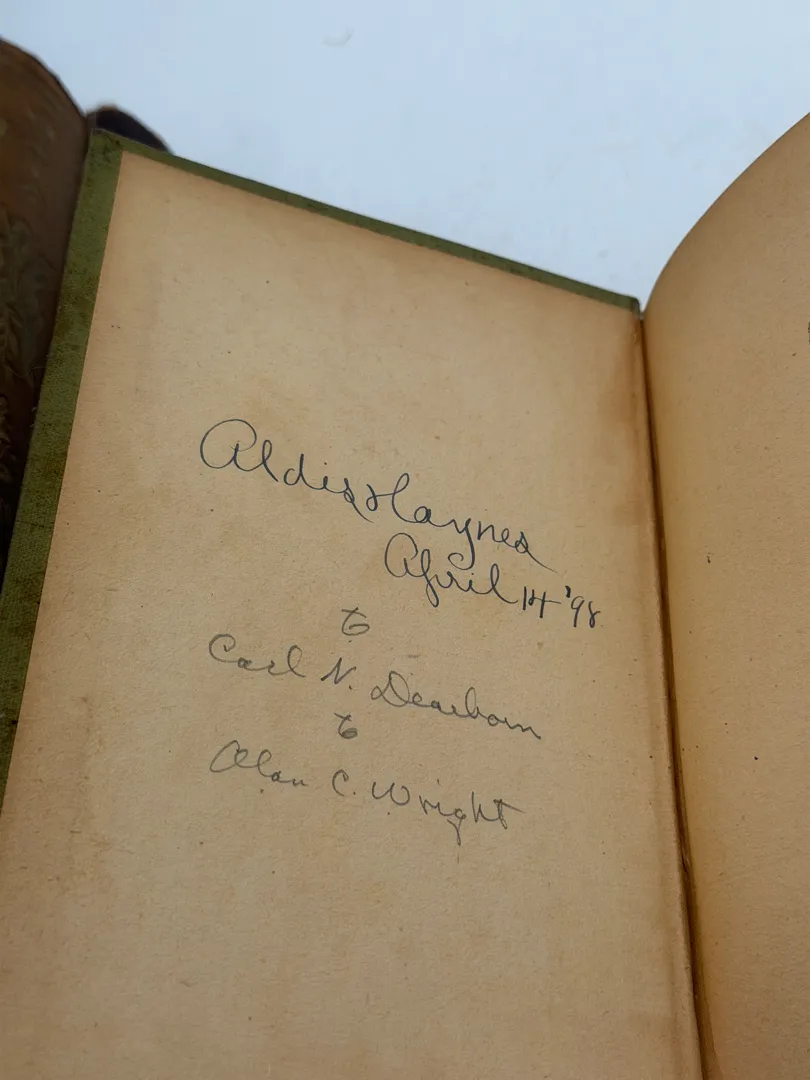 Aldis Haynes
April 14 '98
to
Carl N. Dearborn
to
Alan C. Wright